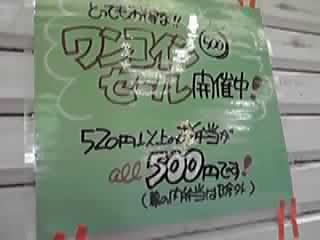 とってもお得な!!
ワンコイン 500
セール開催中!
520円以上のお弁当が
all 500円です!
(弁当は除外)